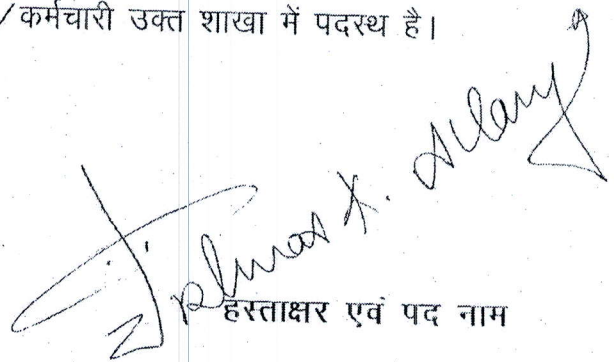 /कर्मचारी उक्त शाखा में पदस्थ है।
हस्ताक्षर एवं पद नाम